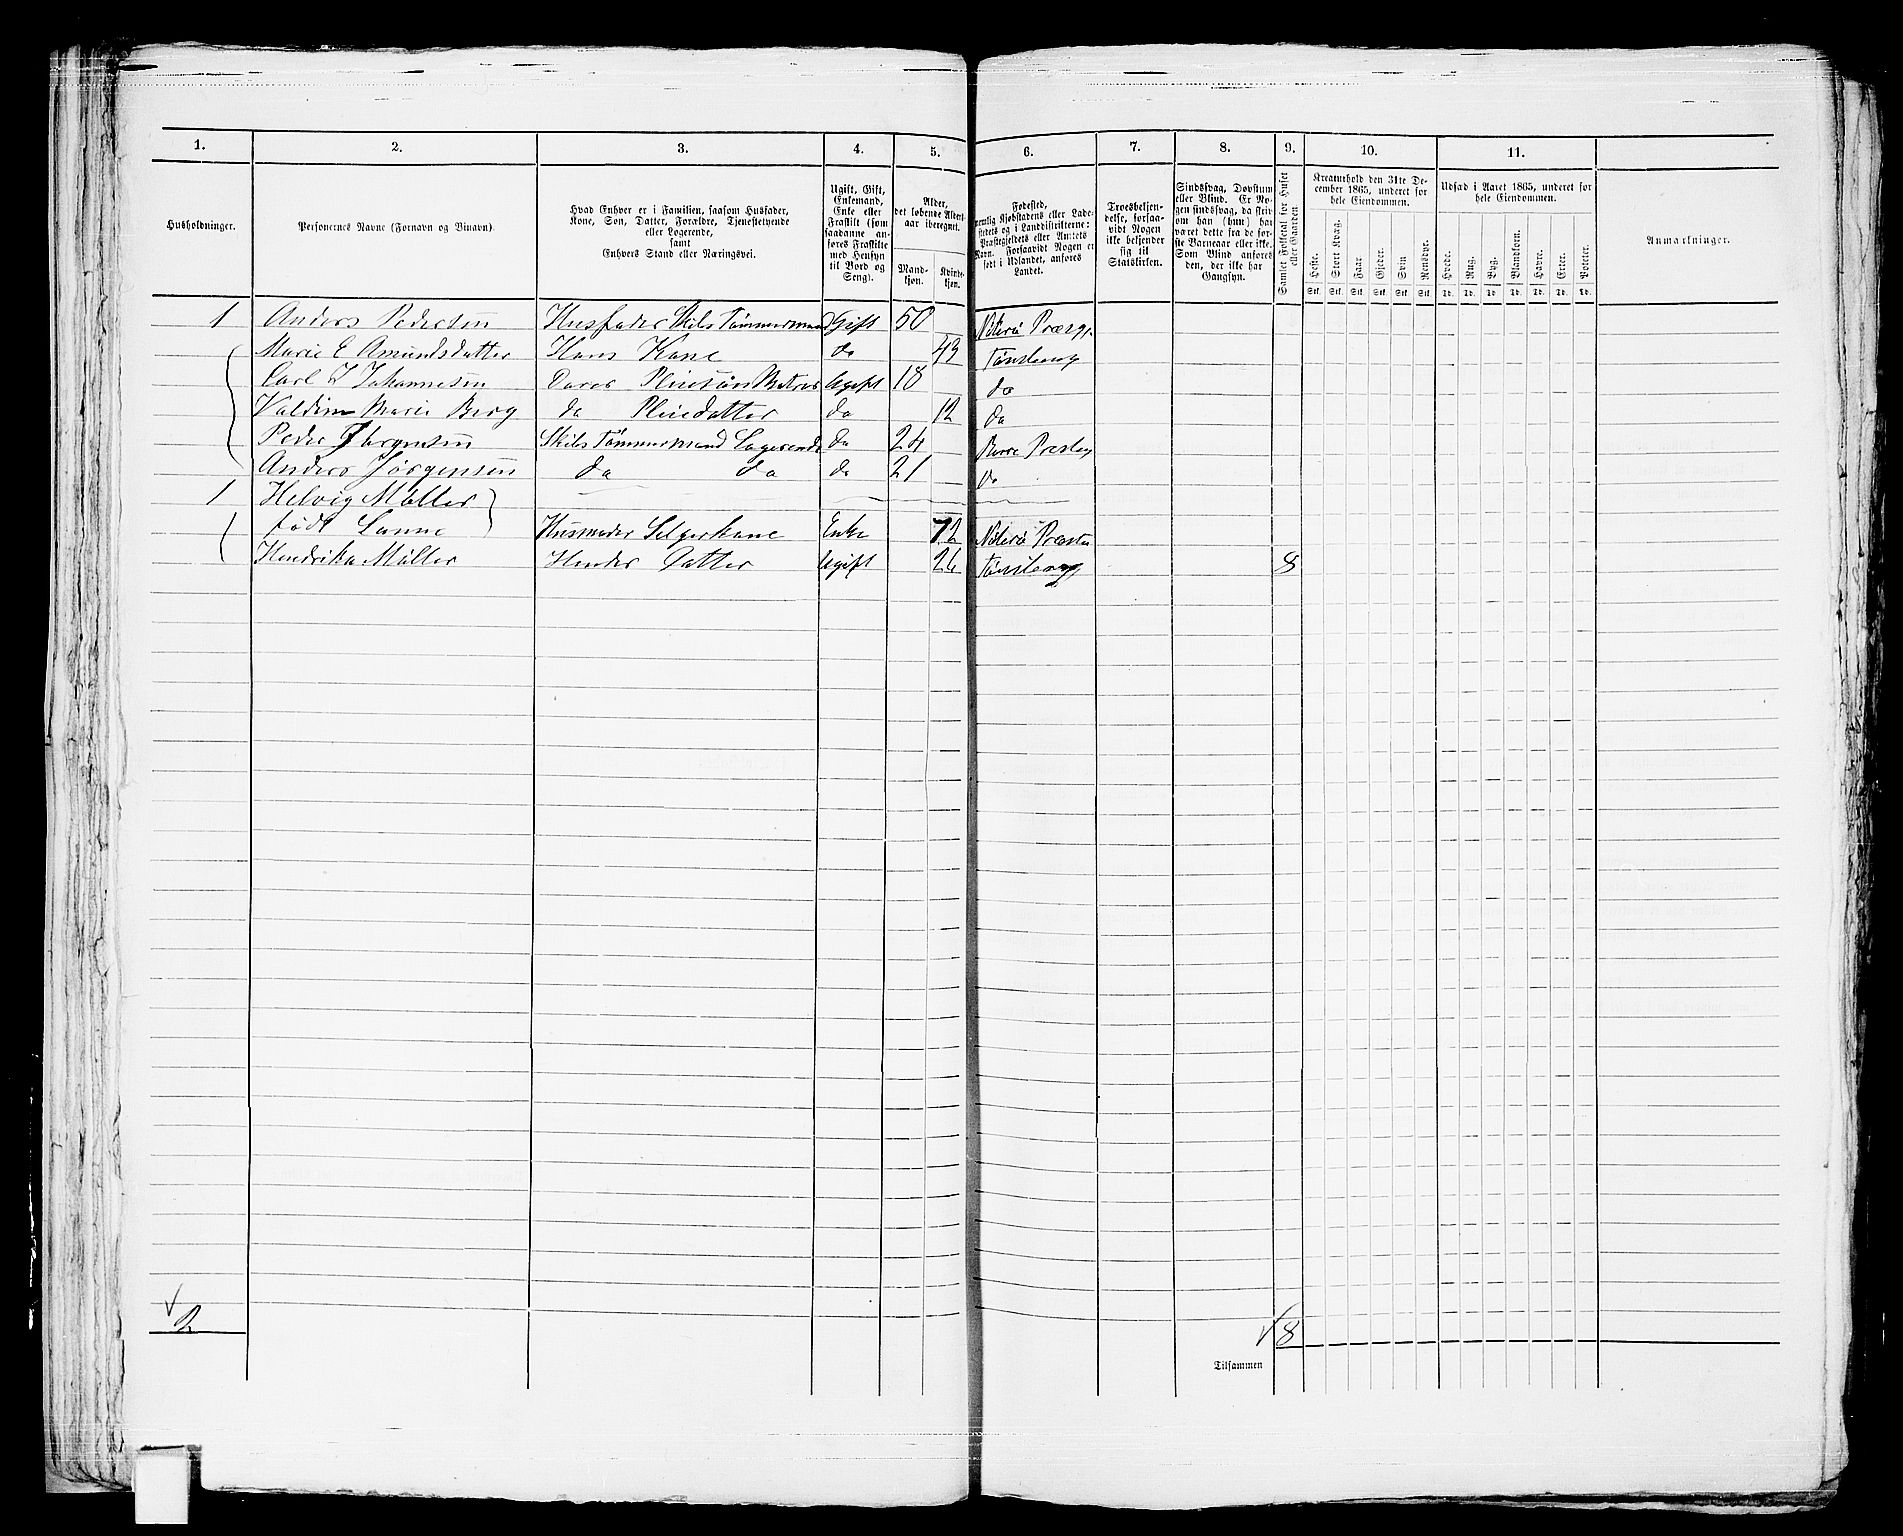 1. 2. 3. 4. 5. 6. 7. 8. 9. 10. 11.
Husholdninger.
Personernes Navne (Fornavn og Binavn).
Hvad Enhver er i Familien, saasom Husfader,
Kone, Søn, Datter, Forældre, Tjenestetyende
eller Logerende,
samt
Enhvers Stand eller Næringsvei.
Ugift, Gift,
Enkemand,
Enke eller
Fraskilt (som
saadanne an-
føres Fraskilte
med Hensyn
til Bord og
Seng).
Alder,
det løbende Alders-
aar iberegnet.
Mand-
kjøn.
Kvinde-
kjøn.
Fødested,
nemlig Kjøbstadens eller Lade-
stedets og i Landdistrikterne:
Præstegjeldets eller Amtets
Navn. Forsaavidt Nogen er
født i Udlandet, anføres
Landet.
Troesbekjen-
delse, forsaa-
vidt Nogen
ikke bekjender
sig til
Statskirken.
Sindssvag, Døvstum
eller Blind. Er No-
gen sindssvag, da skriv
om han (hun) har
været dette fra de før-
ste Barneaar eller ikke.
Som Blind anføres
den, der ikke har
Gangsyn.
Samlet Folketal for Huset
eller Gaarden
Kreaturhold den 31te De-
cember 1865, underet for
hele Eiendommen.
Heste. Stort Kvæg. Faar Gjeder. Svin Rensdyr.
Stk. Stk. Stk. Stk. Stk. Stk.
Udsæd i Aaret 1865, underet for
hele Eiendommen.
Hvede. Rug. Byg. Blandkorn. Havre. Erter. Poteter.
Td. Td. Td. Td. Td. Td. Td.
Anmærkninger.
1 Anders Pedersen Husfader Skibs Tømmermand Gift 50 Nøterø Præstg.
Marie E Amundsdatter Hans Kone do 43 Tønsberg
Carl J Johannesen Deres Pleiesøn Matros Ugift 18 do
Valdine Marie Berg do Pleiedatter do 12 do
Peder Jørgensen Skibs Tømmermand Logerende do 24 Borre Prestg
Anders Jørgensen do do do 21 do
1 Helvig Møller
født Lanne Husmoder Selgerkone Enke 72 Nøterø Præste
Hendrika Møller Hendes Datter Ugift 26 Tønsberg 8
2
8
Tilsammen